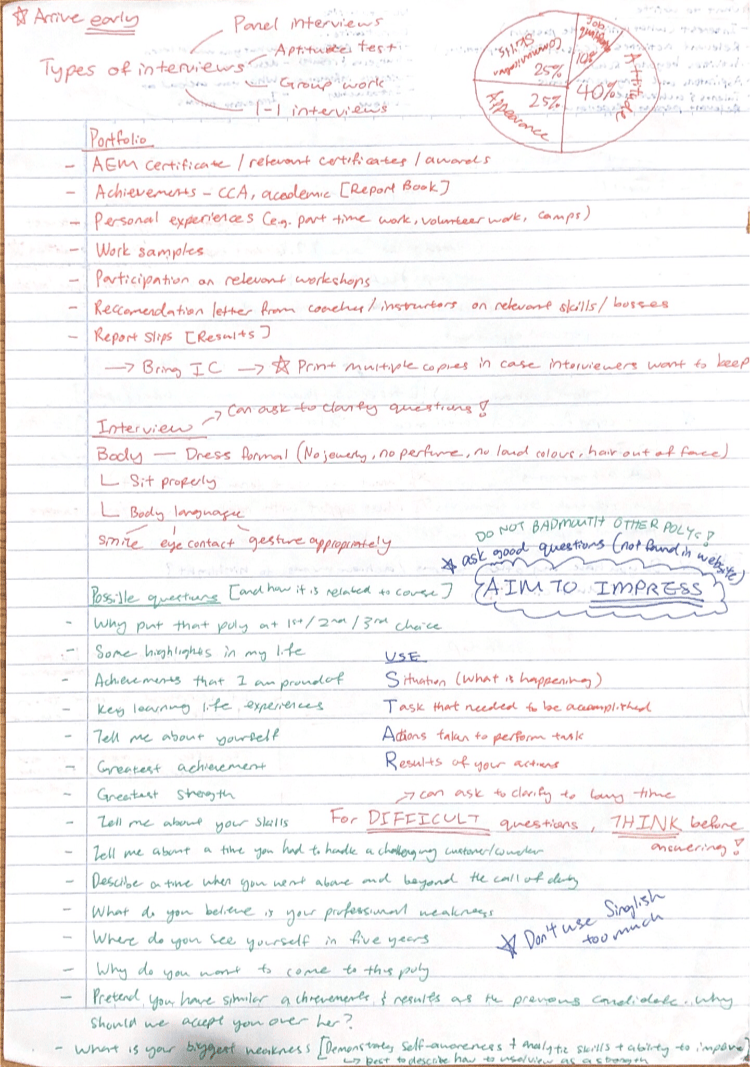 ☆ Arrive early
Types of interviews
Panel interviews
Aptitude test
Group work
1-1 interviews
Communication Skills 25%
Job 10%
Attitude 40%
Appearance 25%
Portfolio
- AEM certificate / relevant certificates / awards
- Achievements - CCA, academic [Report Book]
- Personal experiences (e.g. part time work, volunteer work, camps)
- Work samples
- Participation on relevant workshops
- Reccomendation letter from coaches / instructors on relevant skills / bosses
- Report Slips [Results]
→ Bring IC → ☆ Print multiple copies in case interviewers want to keep
Interview → Can ask to clarify questions!
Body — Dress formal (No jewelry, no perfume, no loud colours, hair out of face)
Sit properly
Body language
smile eye contact gesture appropriately
DO NOT BADMOUTH OTHER POLYS!
☆ ask good questions (not found in website)
AIM TO IMPRESS
Possible questions [and how it is related to course]
- Why put that poly at 1st / 2nd / 3rd choice
- Some highlights in my life
- Achievements that I am proud of
- Key learning life experiences
- Tell me about yourself
- Greatest achievement
- Greatest strength
- Tell me about your skills
USE
Situation (What is happening)
Task that needed to be accomplished
Actions taken to perform task
Results of your actions
→ can ask to clarify to buy time
For DIFFICULT questions, THINK before
answering!
- Tell me about a time you had to handle a challenging customer/
- Describe a time when you went above and beyond the call of duty
- What do you believe is your professional weakness
- Where do you see yourself in five years
☆ Don't use Singlish
too much
- Why do you want to come to this poly
- Pretend you have similar achievements & results as the previous candidate. Why
should we accept you over her?
- What is your biggest weakness [Demonstrates self-awareness + analytic skills + ability to improve]
↳ best to describe how to use/view as a strength